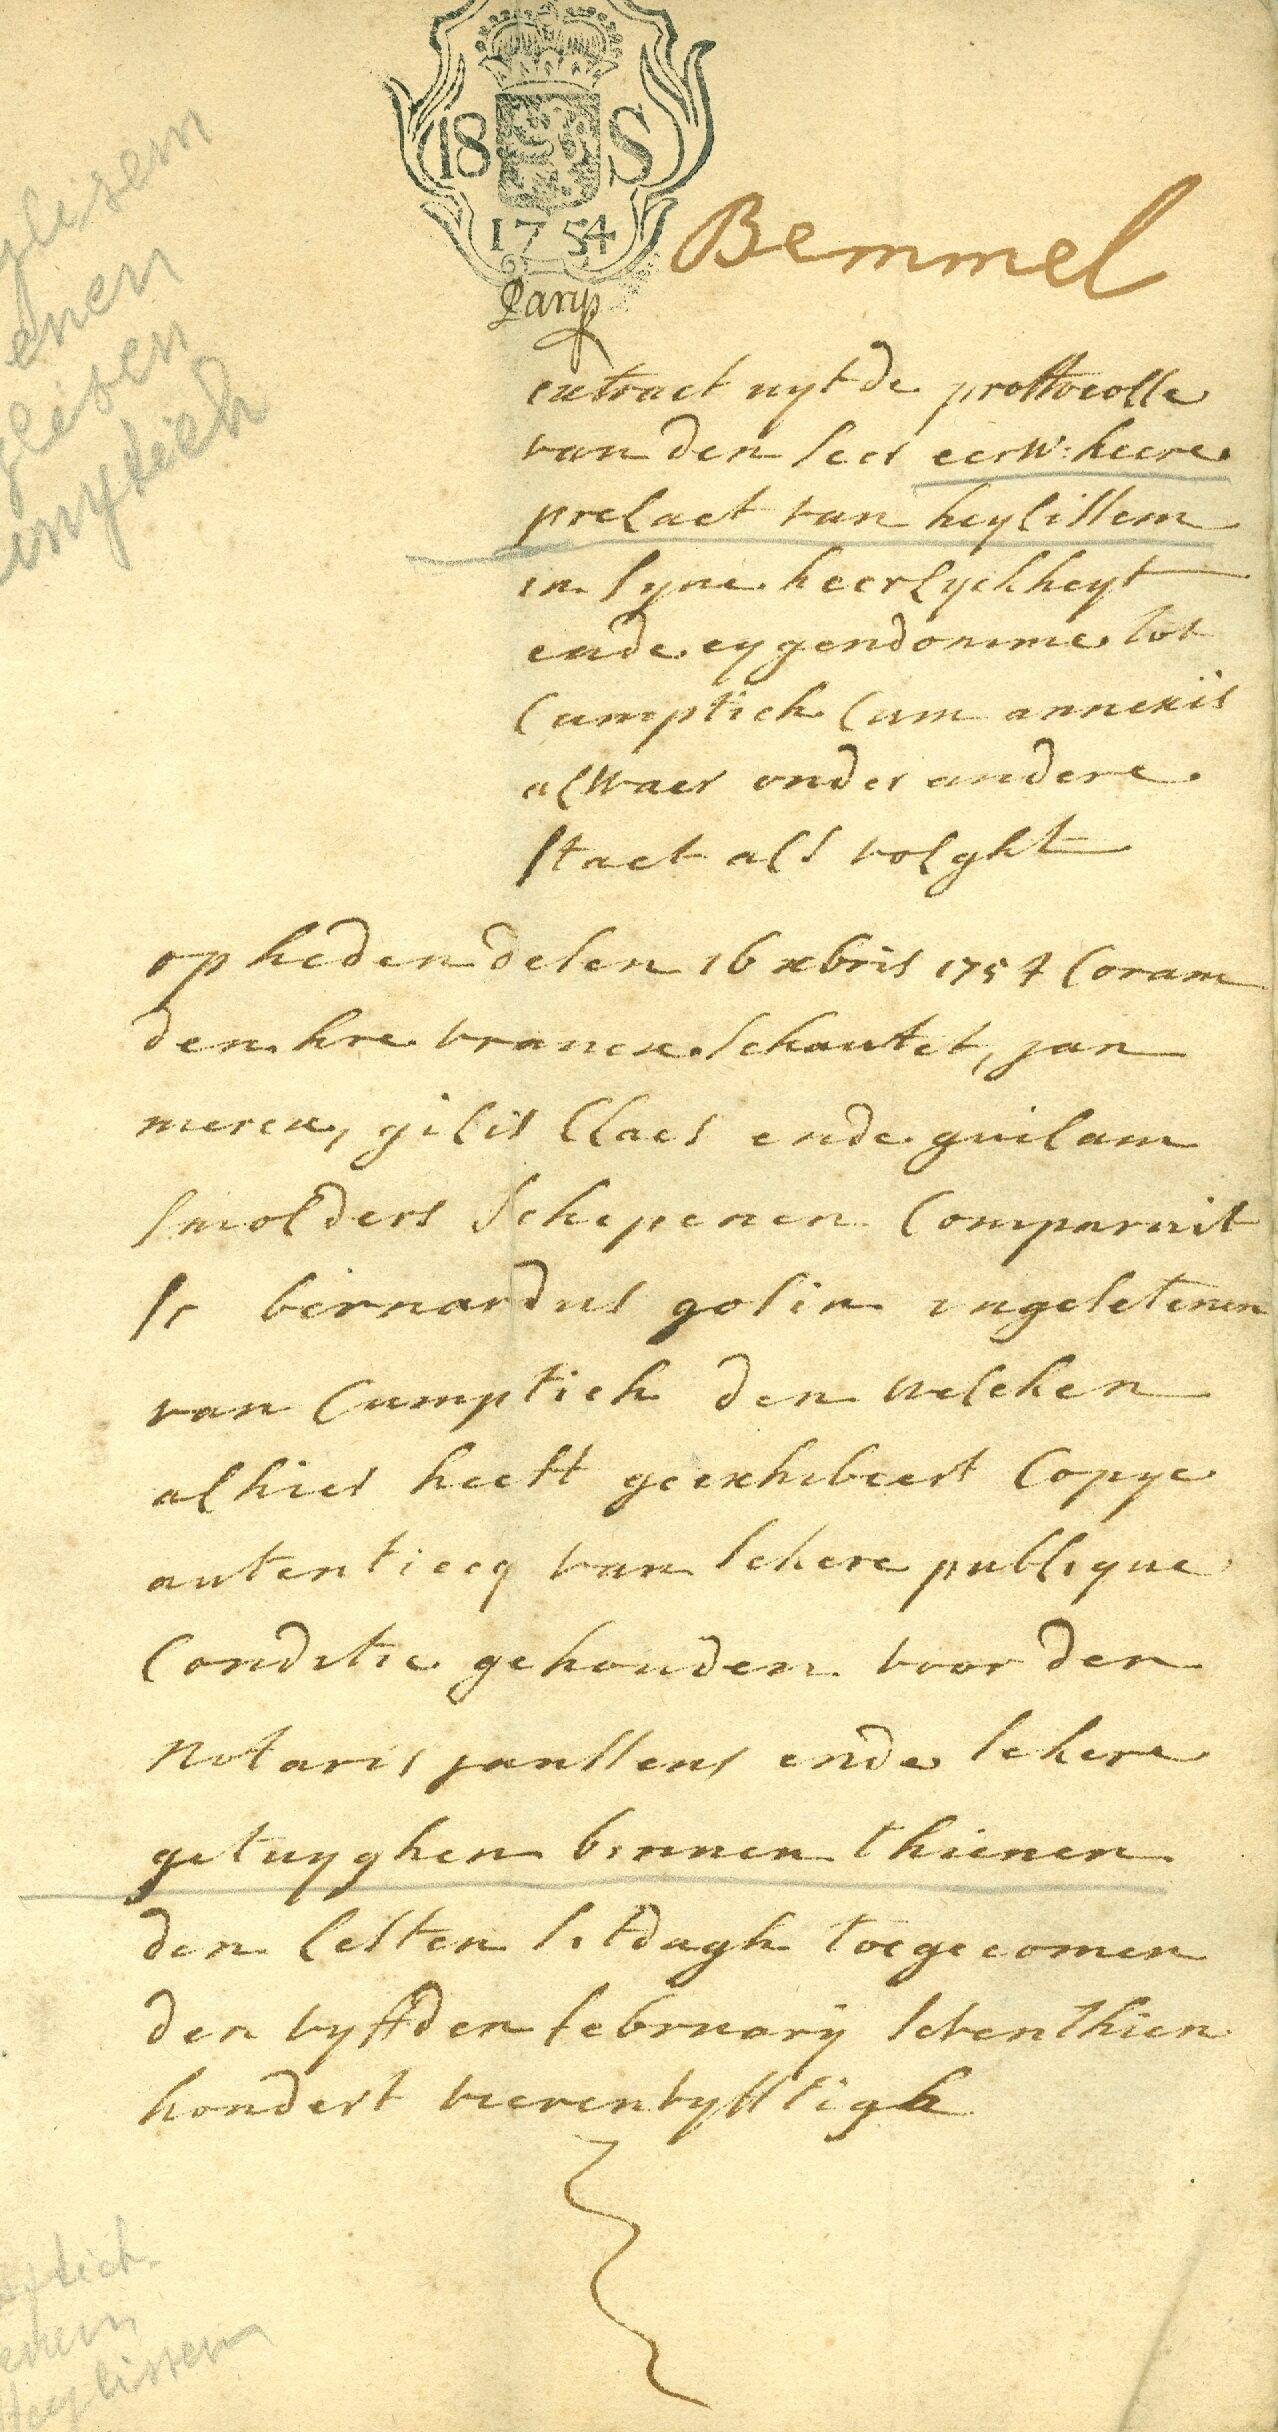 18 S
1754
Parys
Bemmel
extract uyt de prottocolle
van den seer eerw: heere
prelaet van heylissem
in syne heerlyckheyt
ende eygendomme tot
Cumptich Cum annexiis
alwaer onder andere
staet als volght
op heden desen 16 xbris 1754 Coram
den hre vrancx schautet, jan
merex, gilis Claes ende guilam
smolders schepenen Comparuit
sr bernardus gosin ingesetenen
van Cumptich den welcken
alhier heeft geexhibeert Copye
autentiecq van sekere publique
Conditie gehouden voor den
Notaris janssens ende sekere
getuyghen binnen thienen
den lesten sitdagh toegecomen
den vyffden february seventhien
hondert vierenvyfftigh
glisem
enen
glisen
umptich
ptich
enen
Heylissem